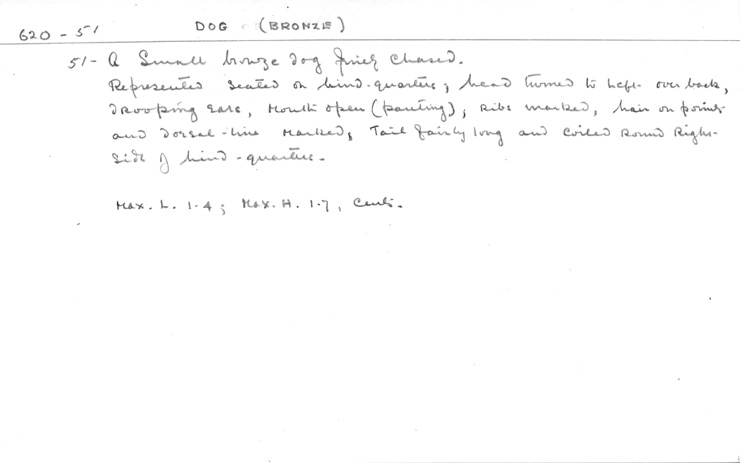 620 - 51 DOG (BRONZE)
51- A Small bronze dog finely chased.
Represented seated on hind-quarters; head turned to left over back,
drooping ears, mouth open (panting), ribs marked, hair on points
and dorsal-line marked, Tail fairly long and coiled round right-
side of hind-quarters.
Max. L. 1.4; Max. H. 1.7, Cents.